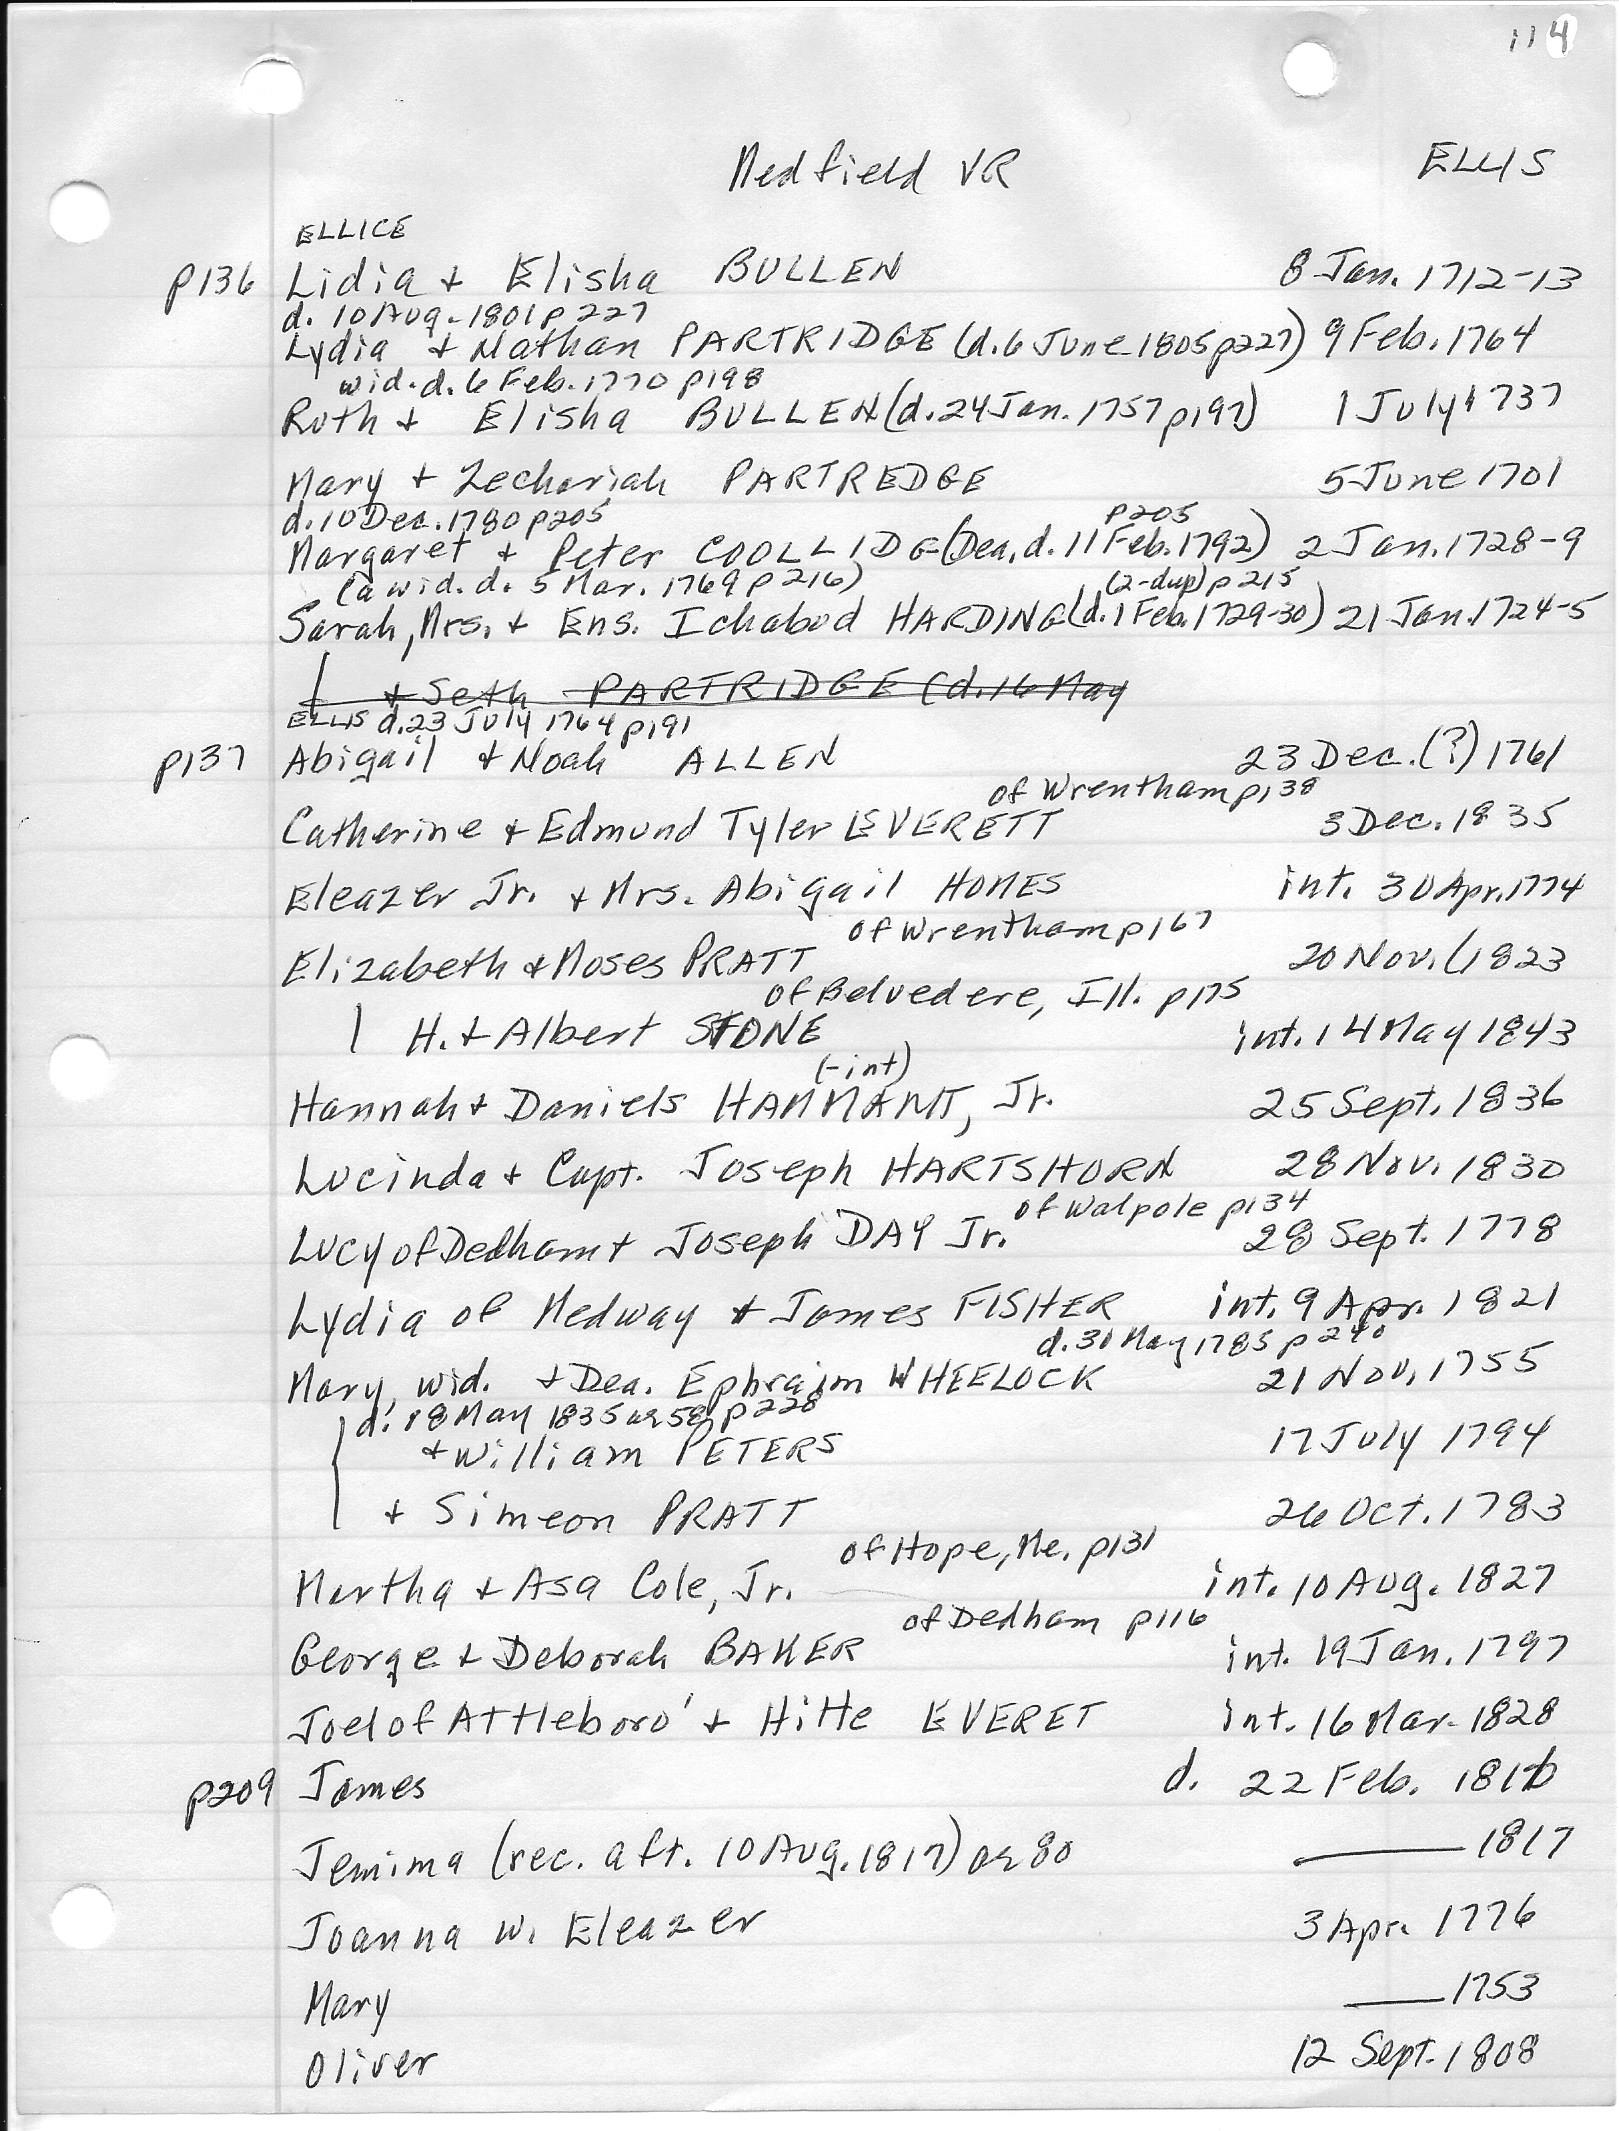 114
Medfield VR ELLIS
ELLICE
p136 Lidia + Elisha BULLEN 8 Jan. 1712-13
d. 10 Aug. 1801 p227
Lydia + Nathan PARTRIDGE (d. 6 June 1805 p227) 9 Feb. 1764
wid. d. 6 Feb. 1770 p198
Ruth + Elisha BULLEN (d. 24 Jan. 1757 p197) 1 July 1737
Mary + Zechariah PARTREDGE 5 June 1701
d. 10 Dec. 1780 p205 p205
Margaret + Peter COOLLIDGE (Dea. d. 11 Feb. 1792) 2 Jan. 1728-9
(a wid. d. 5 Mar. 1769 p216) (2-dup) p215
Sarah, Mrs. + Ens. Ichabod HARDING (d. 1 Feb. 1729-30) 21 Jan. 1724-5
+ Seth PARTRIDGE (d. 16 May
ELLIS d. 23 July 1764 p191
p137 Abigail + Noah ALLEN 23 Dec. (?) 1761
of Wrentham p138
Catherine + Edmund Tyler EVERETT 3 Dec. 1835
Eleazer Jr. + Mrs. Abigail HOMES int. 30 Apr. 1774
of Wrentham p167
Elizabeth + Moses PRATT 20 Nov. 1823
of Belvedere, Ill. p175
| H. + Albert STONE int. 14 May 1843
(-int)
Hannah + Daniels HAMMANT, Jr. 25 Sept. 1836
Lucinda + Capt. Joseph HARTSHORN 28 Nov. 1830
of Walpole p134
Lucy of Dedham + Joseph DAY Jr. 28 Sept. 1778
Lydia of Medway + James FISHER int. 9 Apr. 1821
d. 30 May 1785 p240
Mary, wid. + Dea. Ephraim WHEELOCK 21 Nov. 1755
d. 18 May 1835 ae 58 p228
+ William PETERS 17 July 1794
+ Simeon PRATT 26 Oct. 1783
of Hope, Me. p131
Martha + Asa Cole, Jr. int. 10 Aug. 1827
of Dedham p116
George + Deborah BAKER int. 19 Jan. 1797
Joel of Attleboro' + Hitte EVERET int. 16 Mar. 1828
p209 James d. 22 Feb. 1816
Jemima (rec. aft. 10 Aug. 1817) ae 80 —— 1817
Joanna w. Eleazer 3 Apr. 1776
Mary —— 1753
Oliver 12 Sept. 1808